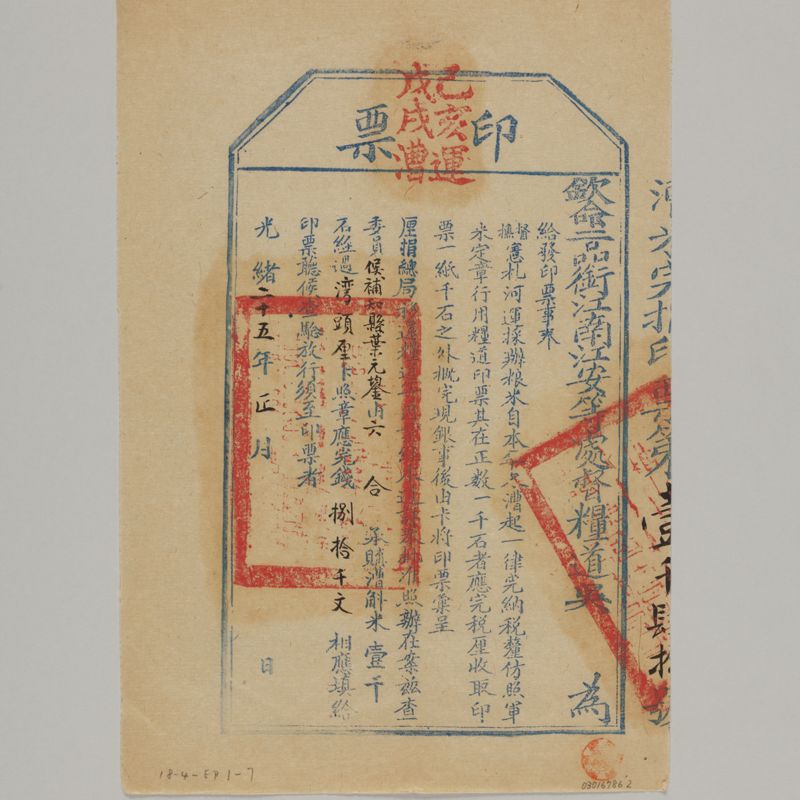 印票
己亥運
戊戌漕
欽命二品銜江南江安等處督糧道吳 為
給發印票事奉
督撫憲札河運採辦糧米自本年冬漕起一律完納稅釐仿照軍
米定章行用糧道印票其在正數一千石者應完稅厘收取印
票一紙千石之外概完現銀事後由卡將印票彙呈
厘捐總局 照辦在案茲查
委員候補知縣葉元鋆由六合 承購漕斛米壹千
石經過灣頭厘卡照章應完錢捌拾千文 相應填給
印票聽候查驗放行須至印票者
光緒二十五年正月 日
壹千肆拾
18-4-EP1-7
03016786.2